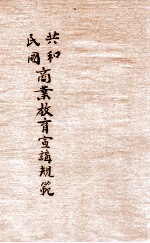 共和
民國
商業教育宣講規範